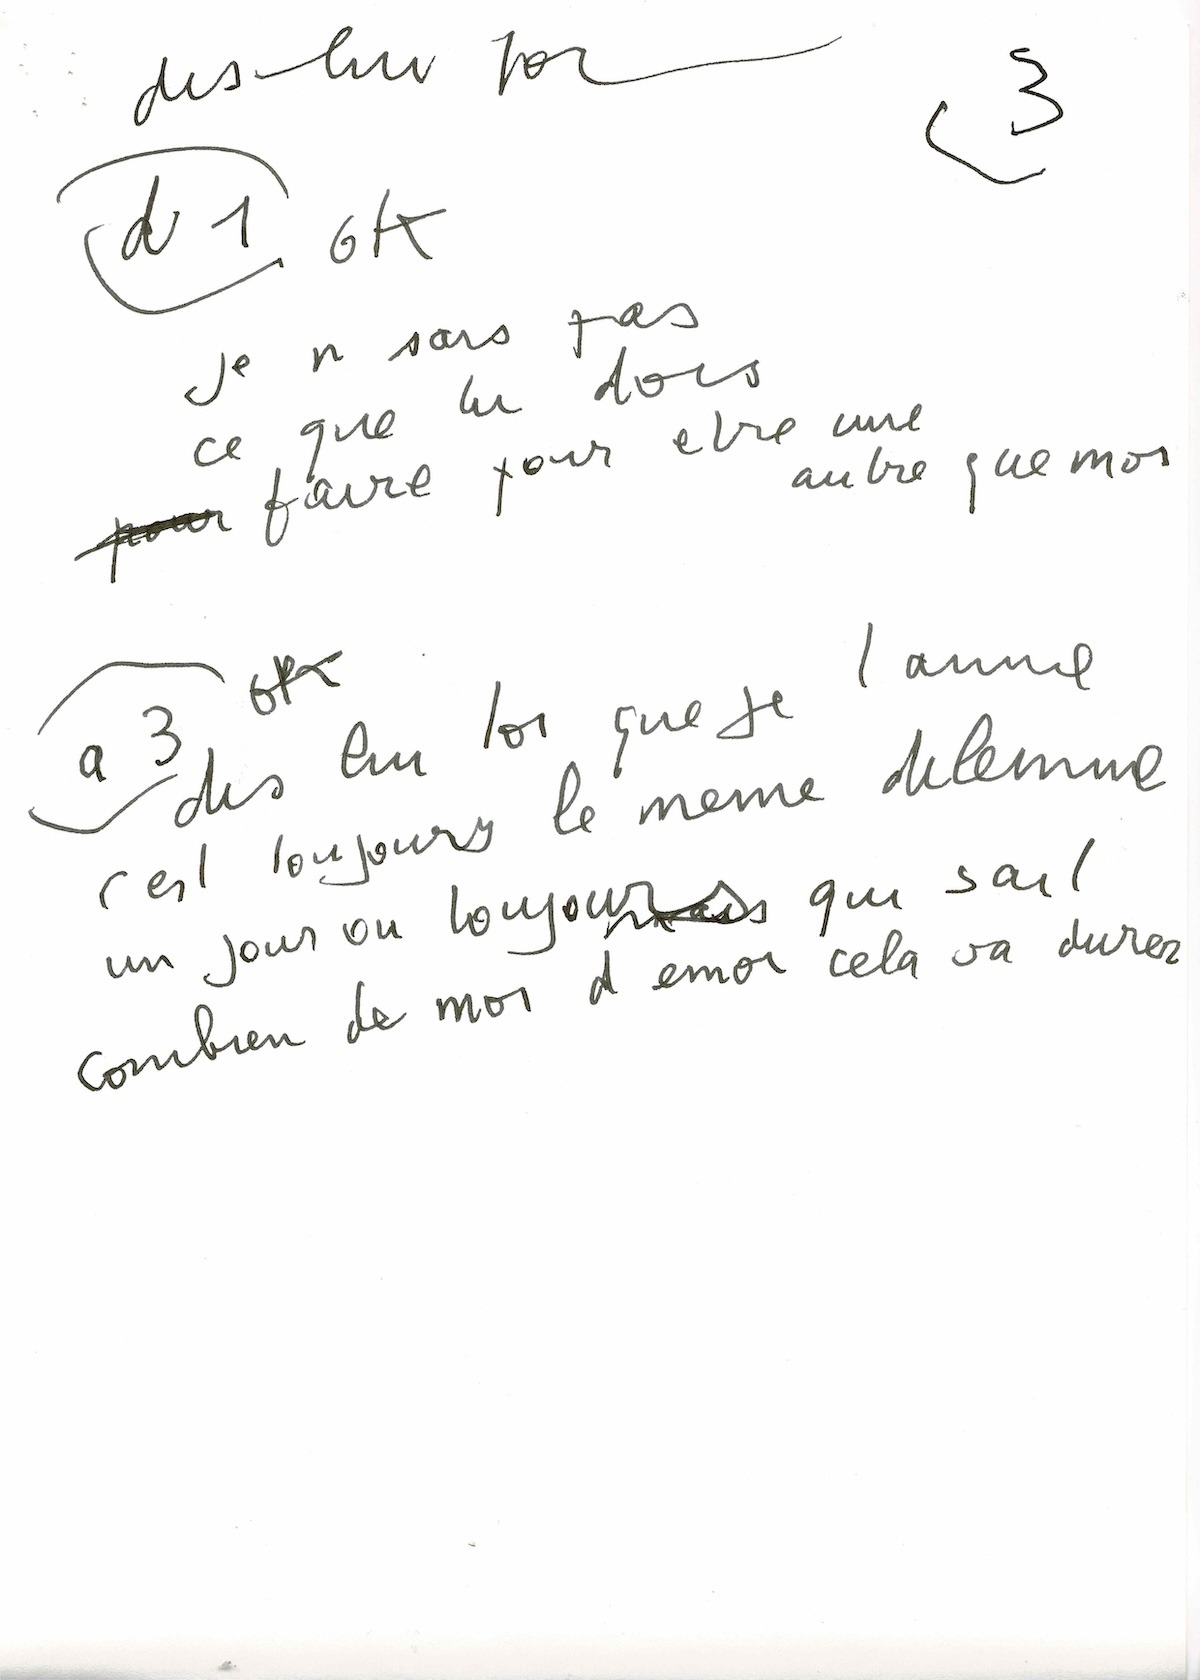 dis-lui toi
3
d 1 ok
je n sais pas
ce que tu dois
faire pour etre une
autre que moi
a 3 ok
dis lui toi que je l aime
c est toujours le meme dilemme
un jour ou toujours qui sait
combien de moi d emoi cela va durer